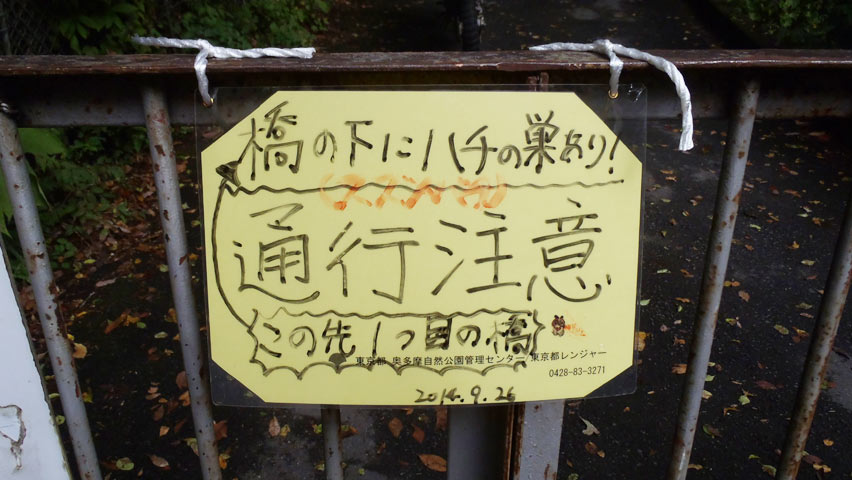 橋の下にハチの巣あり!
(スズメバチ)
通行注意
この先1つ目の橋
東京都 奥多摩自然公園管理センター 東京都レンジャー
0428-83-3271
2014.9.26